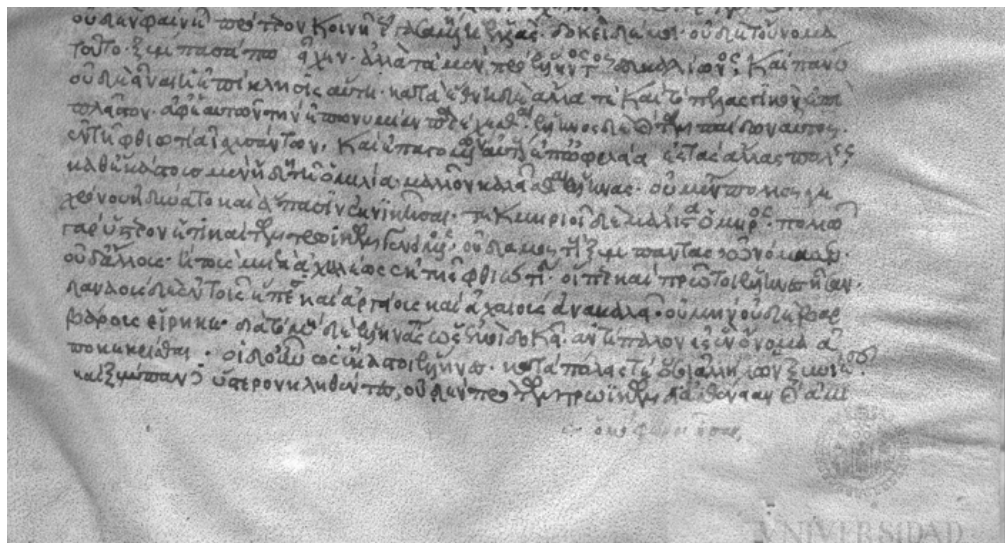 οὐδὲν φαίνεται πρότερον κοινῆ ἐργασαμένη ἡ ἑλλάς· δοκεῖ δέ μοι· οὐδὲ τοὔνομα
τοῦτο· ξύμπασά πω εἶχεν· ἀλλὰ τὰ μὲν πρὸ ἕλληνος τοῦ δευκαλίωνος, καὶ πάνυ
οὐδὲ εἶναι ἡ ἐπίκλησις αὕτη· κατὰ ἔθνη δὲ ἄλλα τε καὶ τὸ πελασγικὸν ἐπὶ
πλεῖστον· ἀφ' ἑαυτῶν τὴν ἐπωνυμίαν παρέχεσθαι· ἕλληνος δὲ καὶ τῶν παίδων αὐτοῦ·
ἐν τῆ φθιώτιδι ἰσχυσάντων, καὶ ἐπαγομένων αὐτοὺς ἐπ' ὠφελεία ἐς τὰς ἄλλας πόλεις
καθ' ἑκάστους μὲν ἤδη τῆ ὁμιλία· μᾶλλον καλεῖσθαι ἕλληνας· οὐ μέντοι πολλοῦ γε
χρόνου ἠδύνατο καὶ ἅπασιν ἐκνικῆσαι· τεκμηριοῖ δὲ μάλιστα ὅμηρος· πολλῶ
γὰρ ὕστερον ἔτι καὶ τῶν τρωικῶν γενόμενος· οὐδαμοῦ τοὺς ξύμπαντας ὠνόμασεν·
οὐδ' ἄλλους· ἢ τοὺς μετὰ ἀχιλλέως ἐκ τῆς φθιώτιδος· οἵπερ καὶ πρῶτοι ἕλληνες ἦσαν·
δαναοὺς δὲ ἐν τοῖς ἔπεσι καὶ ἀργείους καὶ ἀχαιοὺς ἀνακαλεῖ· οὐ μὴν οὐδὲ βαρ
βάρους εἴρηκε· διὰ τὸ μηδὲ ἕλληνάς πω ὡς ἐμοὶ δοκεῖ· ἀντίπαλον ἐς ἓν ὄνομα ἀ
ποκεκρίσθαι· οἱ δ' οὖν ὡς ἕκαστοι ἕλληνες· κατὰ πόλεις τε ὅσοι ἀλλήλων ξυνίεσαν·
καὶ ξύμπαντες ὕστερον κληθέντες, οὐδὲν πρὸ τῶν τρωικῶν δι' ἀσθένειαν καὶ ἀμι
VNIVERSIDAD